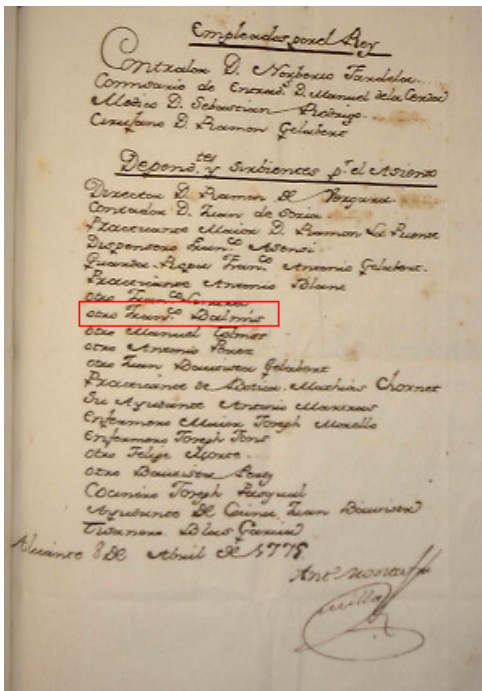 Empleados por el Rey
Contralor D. Norberto
Comisario de Entrad.s D. Manuel de la Cerda
Medico D. Sebastian Rodrigo
Cirujano D. Ramon Gelabert
Depend.tes y Sirbientes p.r el Asiento
Director D. Ramon de Vergara
Contador D. Juan de Soria
Practicante Maior D. Ramon La Puente
Dispensero Fran.co Asensi
Guarda-Ropa Fran.co Antonio Gelabert.
Practicante Antonio Blanc
otro Fran.co
otro Fran.co Balmis
otro Manuel Gomez
otro Antonio Perez
otro Juan Bautista Gelabert
Practicante de Botica. Mathias Chornet
Su Ayudante Antonio
Enfermero Maior Joseph Morello
Enfermero Joseph Pons
otro Felipe
otro Bautista
Cocinero Joseph Pasqual
Ayudante de Cocina Juan Bautista
Tisanero Blas Garcia
Alicante 8 de Abril de 1775.
Ant.o